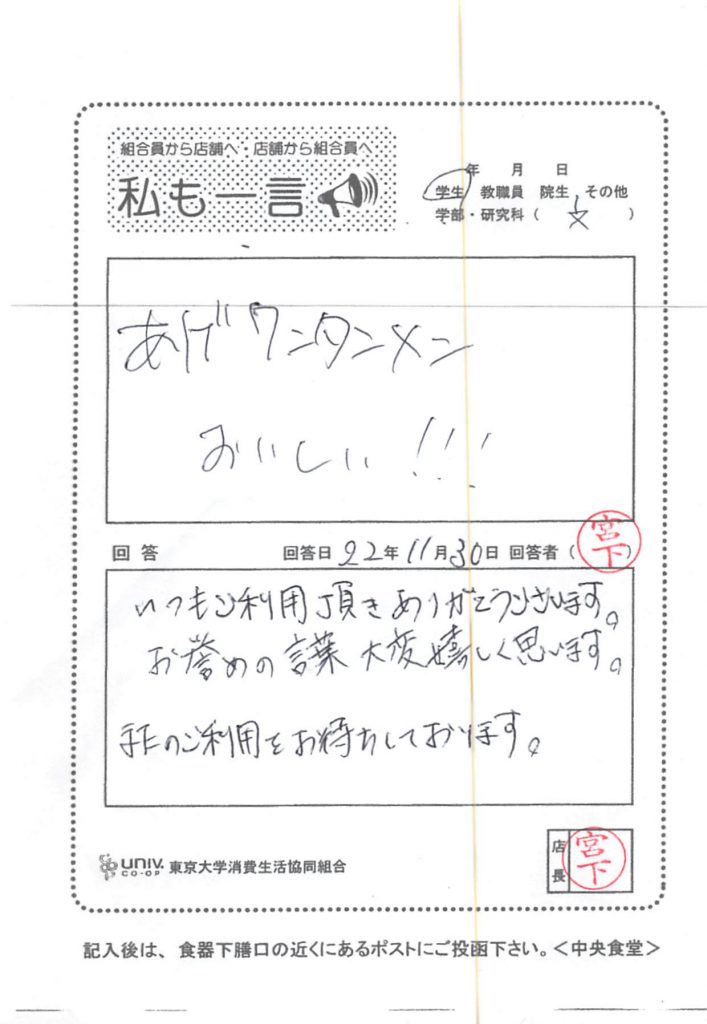 組合員から店舗へ・店舗から組合員へ
私も一言
年 月 日
学生 教職員 院生 その他
学部・研究科（ 文 ）
あげワンタンメン
おいしい!!!
回答 回答日 22年 11月30日 回答者（宮下）
いつもご利用頂きありがとうございます。
お誉めの言葉 大変嬉しく思います。
またのご利用をお待ちしております。
UNIV. CO-OP 東京大学消費生活協同組合
店長 宮下
記入後は、食器下膳口の近くにあるポストにご投函下さい。＜中央食堂＞